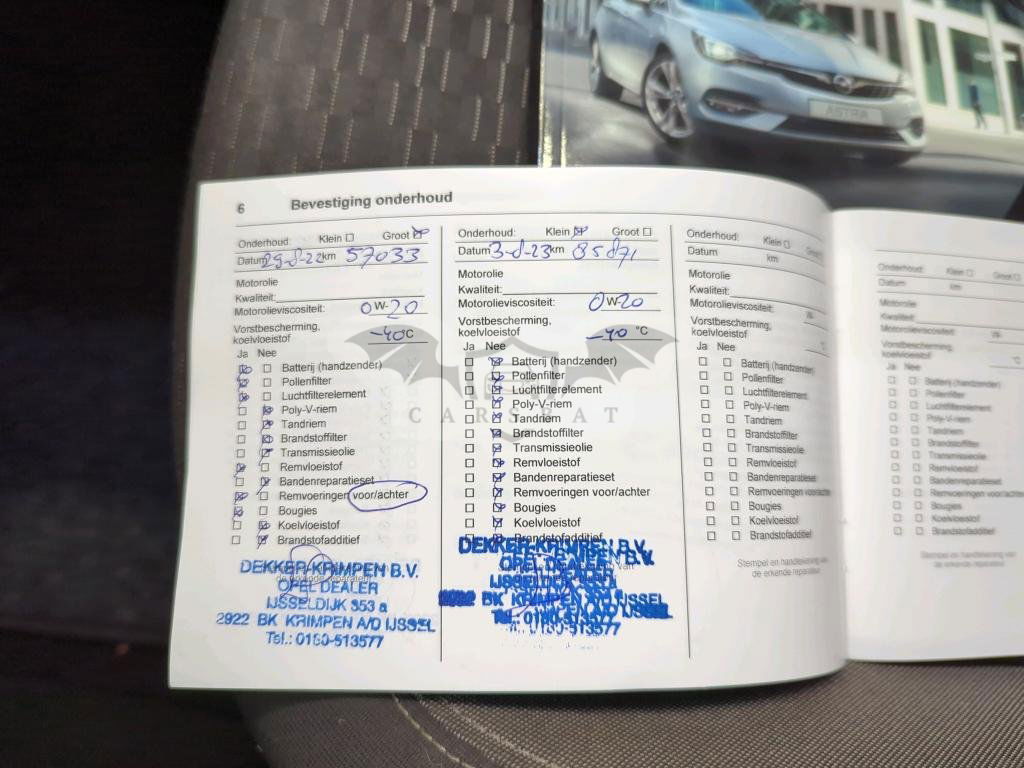 ASTRA
6 Bevestiging onderhoud
Onderhoud: Klein Groot
Datum 29-8-22 km 57033
Motorolie
Kwaliteit:
Motorolieviscositeit: 0 W-20
Vorstbescherming,
koelvloeistof -40 °C
Ja Nee
Batterij (handzender)
Pollenfilter
Luchtfilterelement
Poly-V-riem
Tandriem
Brandstoffilter
Transmissieolie
Remvloeistof
Bandenreparatieset
Remvoeringen voor/achter
Bougies
Koelvloeistof
Brandstofadditief
DEKKER-KRIMPEN B.V.
OPEL DEALER
IJSSELDIJK 353 a
2922 BK KRIMPEN A/D IJSSEL
Tel.: 0180-513577
Onderhoud: Klein Groot
Datum 3-8-23 km 85871
Motorolie
Kwaliteit:
Motorolieviscositeit: 0 W-20
Vorstbescherming,
koelvloeistof -40 °C
Ja Nee
Batterij (handzender)
Pollenfilter
Luchtfilterelement
Poly-V-riem
Tandriem
Brandstoffilter
Transmissieolie
Remvloeistof
Bandenreparatieset
Remvoeringen voor/achter
Bougies
Koelvloeistof
Brandstofadditief
DEKKER-KRIMPEN B.V.
OPEL DEALER
2922 BK KRIMPEN A/D IJSSEL
Tel.: 0180-513577
Onderhoud: Klein Groot
Datum km
Motorolie
Kwaliteit:
Motorolieviscositeit: W-
Vorstbescherming,
koelvloeistof °C
Ja Nee
Batterij (handzender)
Pollenfilter
Luchtfilterelement
Poly-V-riem
Tandriem
Brandstoffilter
Transmissieolie
Remvloeistof
Bandenreparatieset
Remvoeringen voor/achter
Bougies
Koelvloeistof
Brandstofadditief
Stempel en handtekening van
de erkende reparateur
Onderhoud: Klein Groot
Datum km
Motorolie
Kwaliteit:
Motorolieviscositeit: W-
Vorstbescherming,
koelvloeistof °C
Ja Nee
Batterij (handzender)
Pollenfilter
Luchtfilterelement
Poly-V-riem
Tandriem
Brandstoffilter
Transmissieolie
Remvloeistof
Bandenreparatieset
Remvoeringen voor/achter
Bougies
Koelvloeistof
Brandstofadditief
Stempel en handtekening van
de erkende reparateur